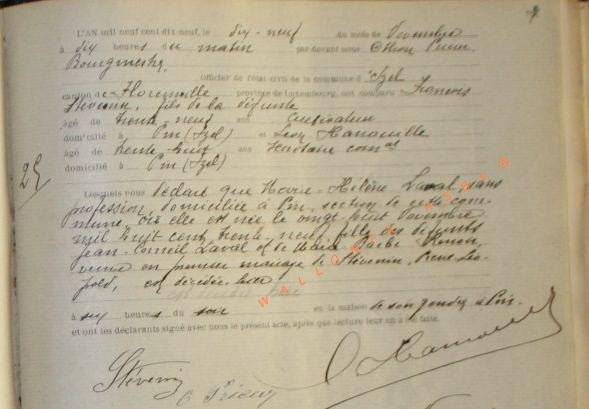 L'AN mil neuf cent dix-neuf, le dix-neuf du mois de Novembre
à dix heures du matin par devant nous
Bourgmestre,
Officier de l'état civil de la commune d'Izel
canton de Florenville province de Luxembourg, ont comparu François
Stévenin, fils de la défunte
âgé de trente-neuf ans cultivateur
domicilié à Pin (Izel) et Léon Hanouille
âgé de trente-huit ans secrétaire comal
domicilié à Pin (Izel)
25
Lesquels nous déclaré que Marie-Hélène Laval, sans
profession, domiciliée à Pin, section de cette com-
mune, où elle est née le vingt-huit Novembre
mil huit cent trente-neuf, fille des défunts
Jean-Corneil Laval et de Marie Barbe
veuve en premier mariage de Stévenin, Pierre Léo-
pold, est décédée hier
à six heures du soir en la maison de son gendre à Pin.
et ont les déclarants signé avec nous le présent acte, après que lecture leur en a été faite.
Stévenin
Hanouille